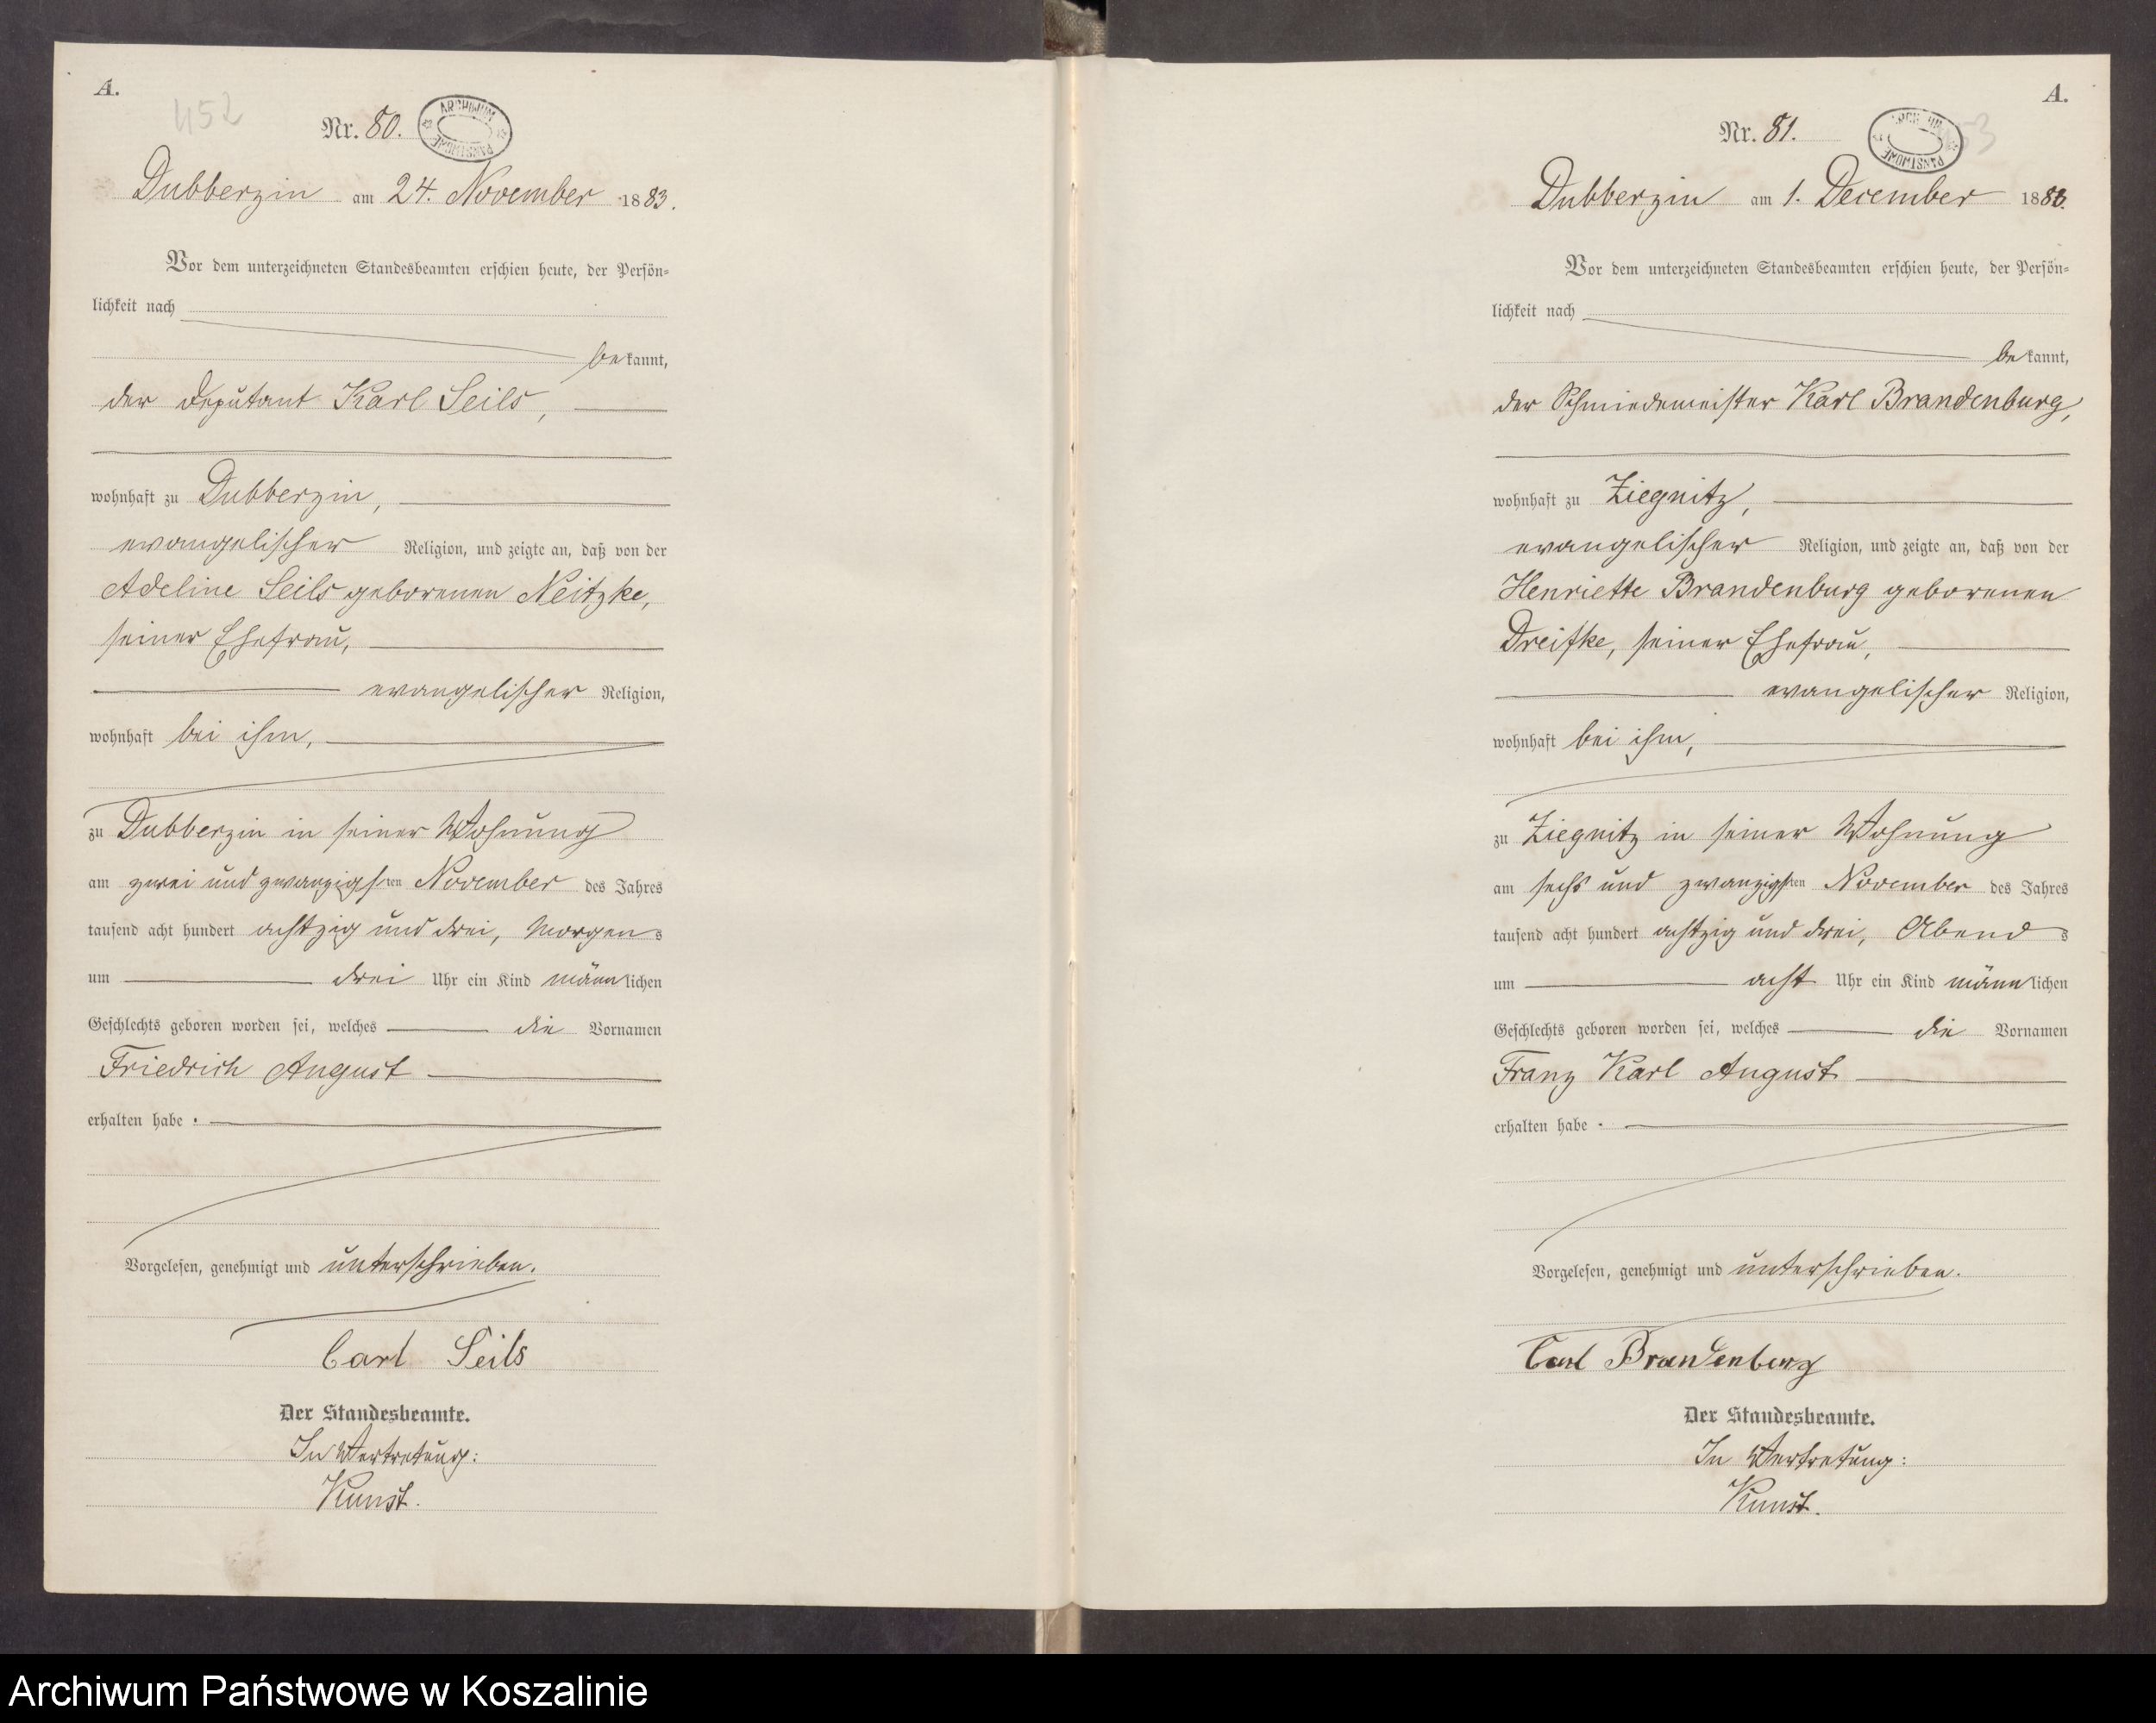 A.
452
Nr. 80.
ARCHIWUM PAŃSTWOWE
Dubberzin am 24. November 1883.
Vor dem unterzeichneten Standesbeamten erschien heute, der Persön=
lichkeit nach
bekannt,
der Deputant Karl Seils,
wohnhaft zu Dubberzin,
evangelischer Religion, und zeigte an, daß von der
Adeline Seils geborenen Neitzke,
seiner Ehefrau,
evangelischer Religion,
wohnhaft bei ihm,
zu Dubberzin in seiner Wohnung
am zwei und zwanzigsten November des Jahres
tausend acht hundert achtzig und drei, Morgens
um drei Uhr ein Kind männlichen
Geschlechts geboren worden sei, welches die Vornamen
Friedrich August
erhalten habe.
Vorgelesen, genehmigt und unterschrieben.
Carl Seils
Der Standesbeamte.
In Vertretung:
Kunst.
A.
Nr. 81.
PAŃSTWOWE
53
Dubberzin am 1. December 1883.
Vor dem unterzeichneten Standesbeamten erschien heute, der Persön=
lichkeit nach
bekannt,
der Schmiedemeister Karl Brandenburg,
wohnhaft zu Ziegnitz,
evangelischer Religion, und zeigte an, daß von der
Henriette Brandenburg geborenen
Dreifke, seiner Ehefrau,
evangelischer Religion,
wohnhaft bei ihm,
zu Ziegnitz in seiner Wohnung
am sechs und zwanzigsten November des Jahres
tausend acht hundert achtzig und drei, Abends
um acht Uhr ein Kind männlichen
Geschlechts geboren worden sei, welches die Vornamen
Franz Karl August
erhalten habe.
Vorgelesen, genehmigt und unterschrieben.
Carl Brandenburg
Der Standesbeamte.
In Vertretung:
Kunst.
Archiwum Państwowe w Koszalinie